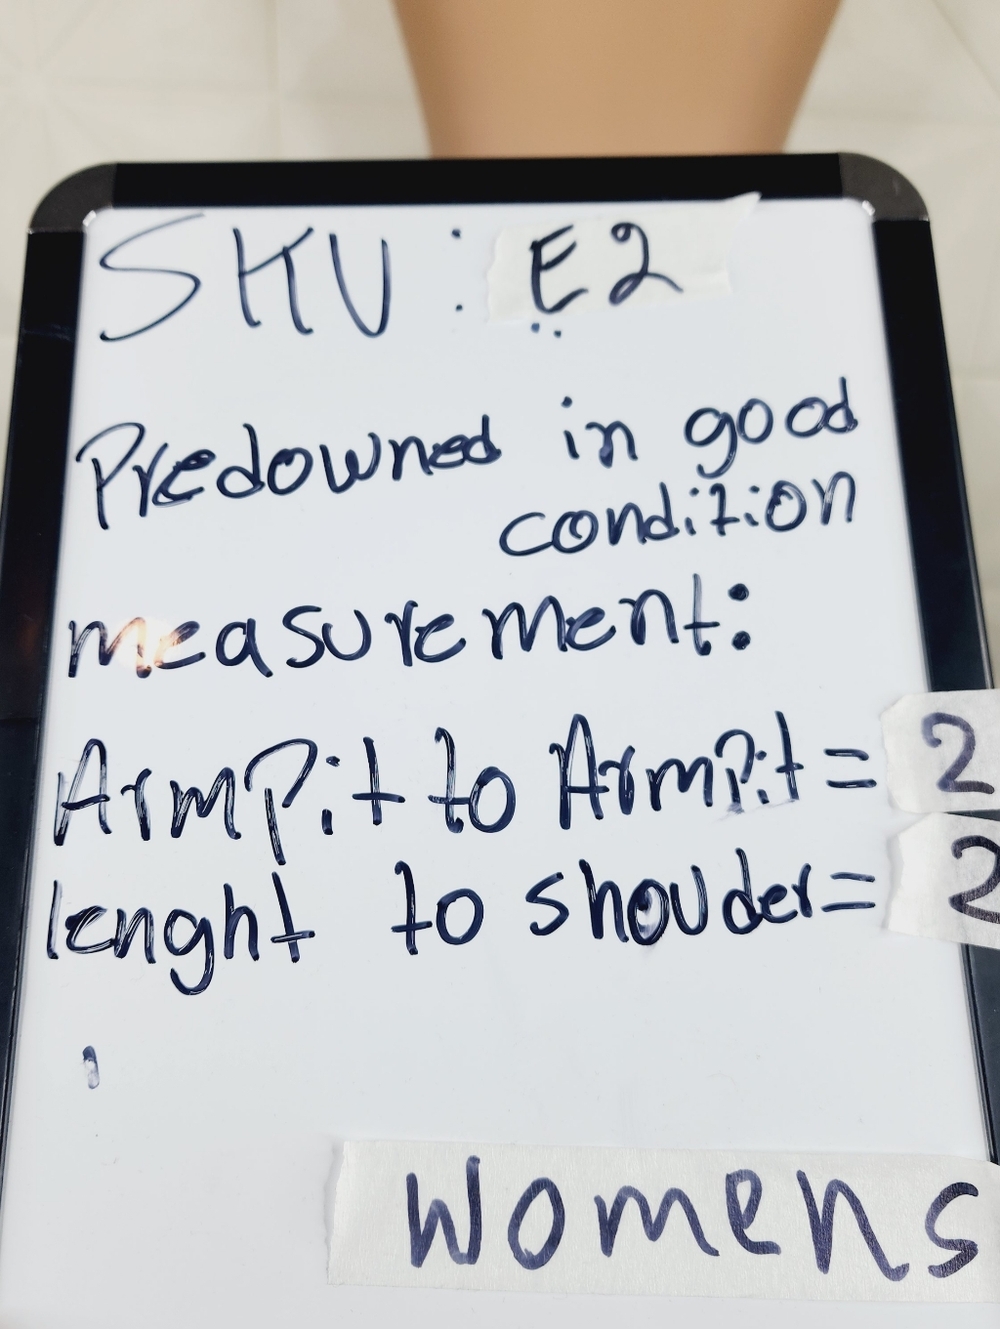 SKU: E2
Predowned in good
condition
measurement:
ArmPit to ArmPit = 2
lenght to shouder = 2
Womens